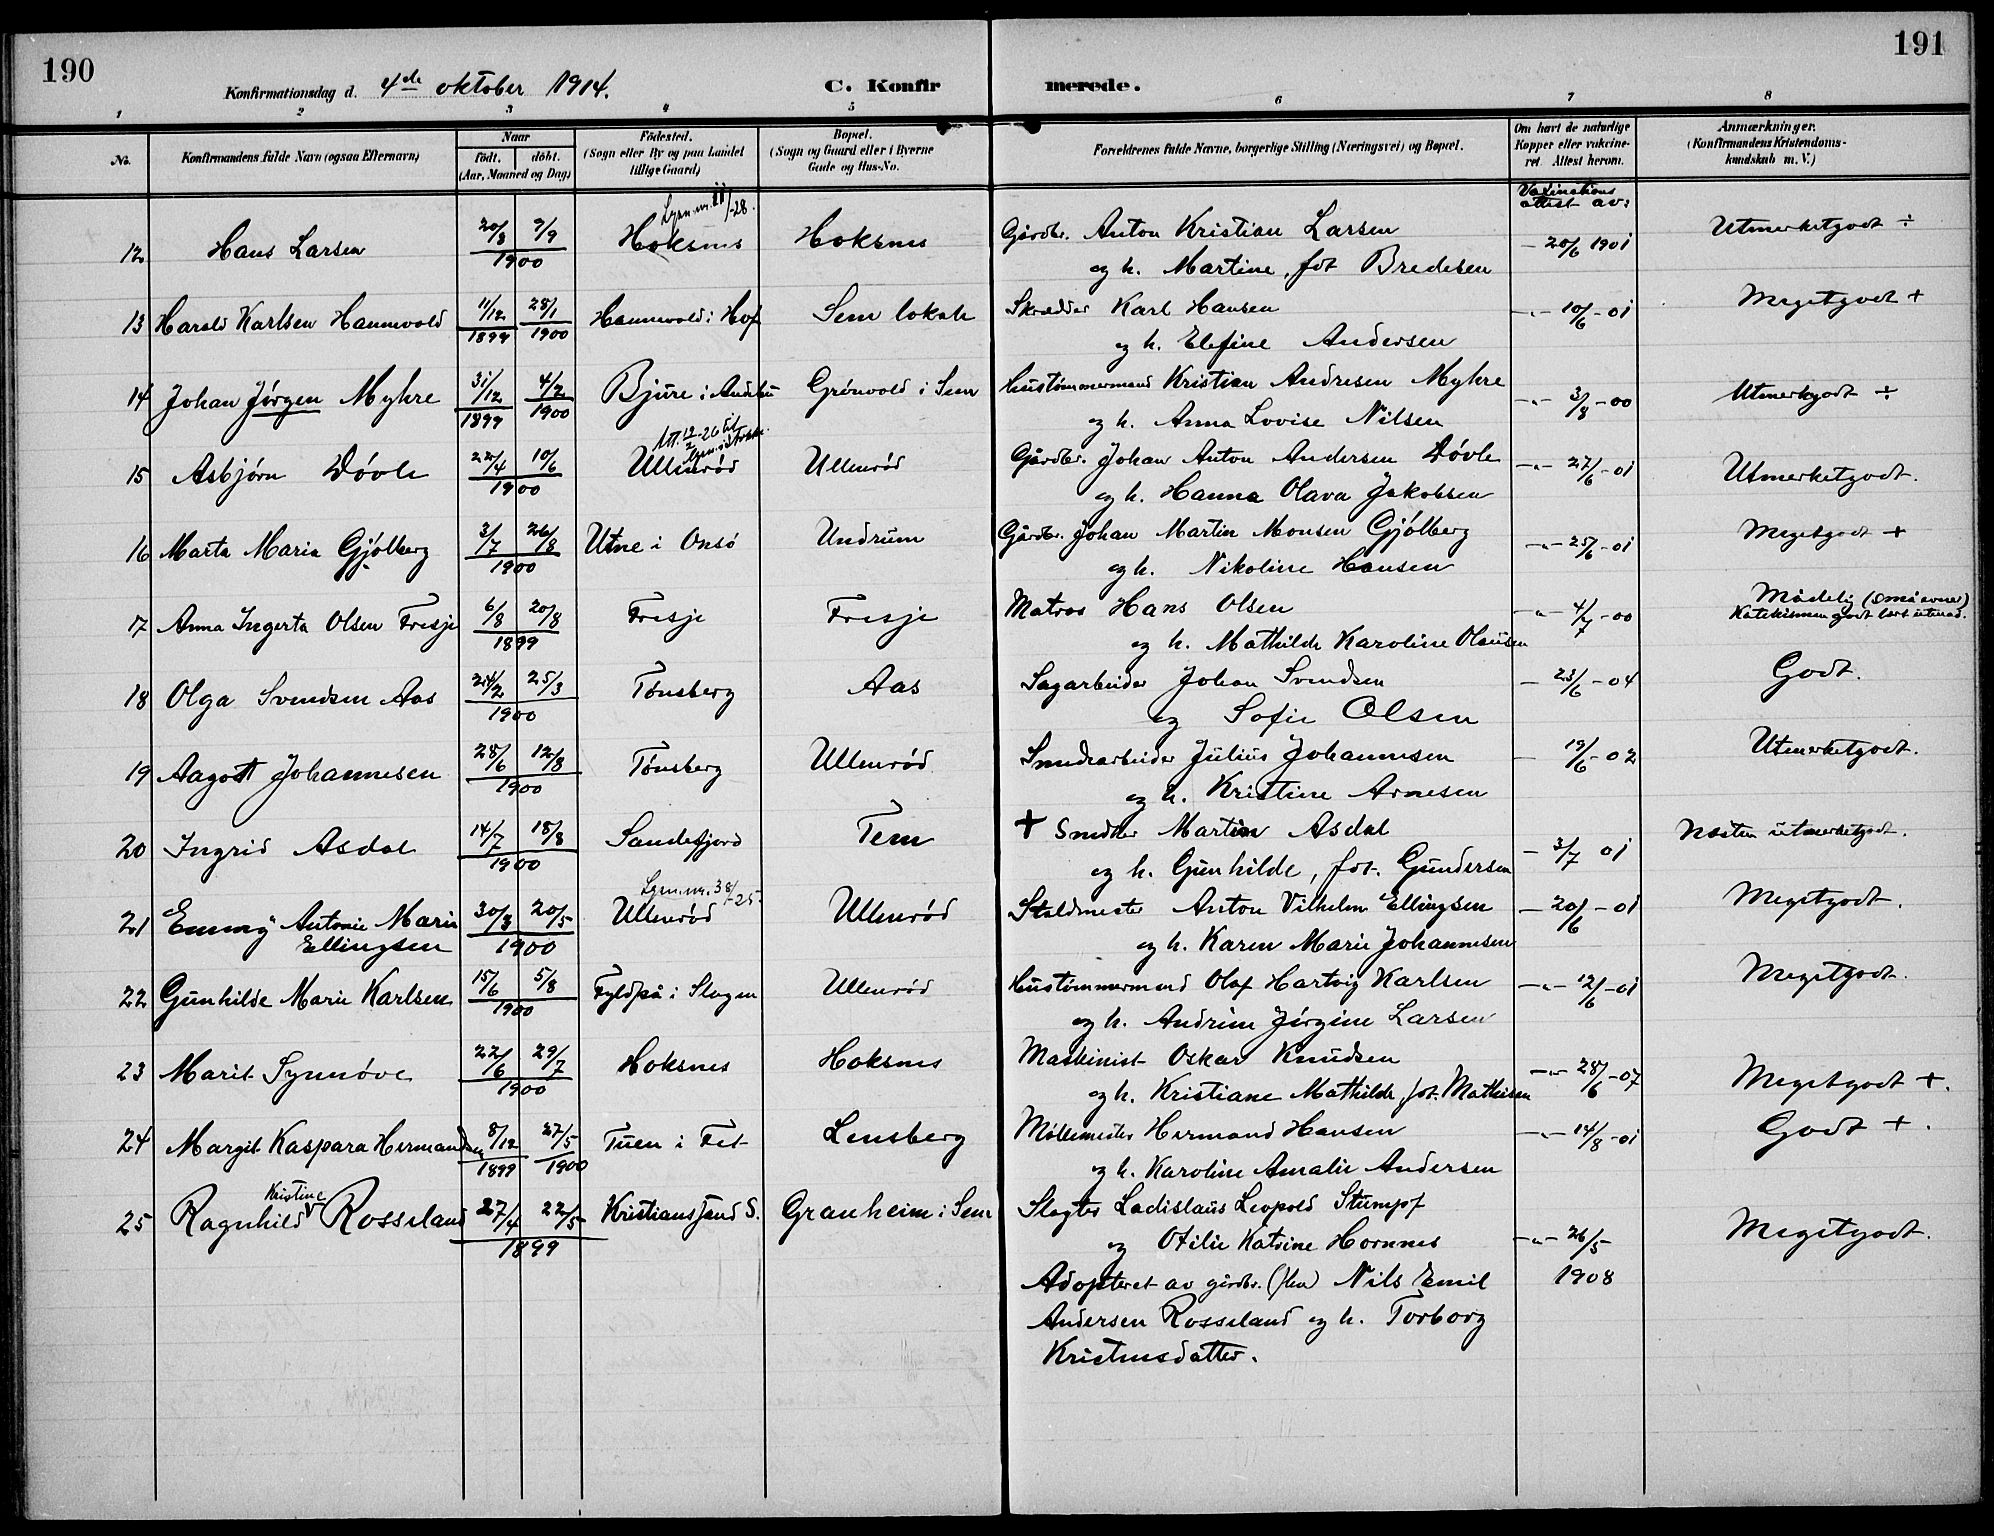 190
191
Konfirmationsdag d. 4de oktober 1914.
C. Konfir
merede.
1 2 3 4 5 6 7 8
No.
Konfirmandens fulde Navn (ogsaa Efternavn)
Naar
födt. döbt.
(Aar, Maaned og Dag)
Födested.
(Sogn eller By og paa Landet
tillige Gaard)
Bopæl.
(Sogn og Gaard eller i Byerne
Gade og Hus-No.
Forældrenes fulde Navne, borgerlige Stilling (Næringsvei) og Bopæl.
Om havt de naturlige
Kopper eller vakcine-
ret. Attest herom.
Anmærkninger.
(Konfirmandens Kristendoms-
kundskab m. V.)
Vaxinations
attest av:
Lysn. nr. 11/-28.
12 Hans Larsen 20/8 9/9 1900 Hoksnes Hoksnes Gårdbr. Anton Kristian Larsen – 20/6 1901 Utmerketgodt ÷
og h. Martine, föt Bredesen
13 Harald Karlsen Hannevold 11/12 1899 28/1 1900 Hannevold i Hof Sem lokale Skrædder Karl Hansen –"– 10/6-01 Megetgodt +
og h. Elefine Andersen
14 Johan Jörgen Myhre 31/12 1899 4/2 1900 Bjure i Andebu Grönvold i Sem Hustömmermand Kristian Andresen Myhre –"– 3/8-00 Utmerkgodt ÷
og h. Anna Lovise Nilsen
15 Asbjörn Dövle 22/4 10/6 1900 Ullenröd Ullenröd Gårdbr. Johan Anton Andersen Dövle –"– 27/6-01 Utmerketgodt.
og h. Hanna Olava Jakobsen
16 Marta Maria Gjölberg 3/7 26/8 1900 Utne i Onsö Undrum Gårdbr. Johan Martin Monsen Gjölberg –"– 25/6-01 Megetgodt +
og h. Nikoline Hansen
17 Anna Ingerta Olsen Fresje 6/8 20/8 1899 Fresje Fresje Matros Hans Olsen –"– 4/7-00 Mådelig (små evner)
Katekismen godt lært utenad.
og h. Mathilde Karoline Olausen
18 Olga Svendsen Aas 24/2 25/3 1900 Tönsberg Aas Sagarbeider Johan Svendsen – 23/6-04 Godt.
og Sofie Olsen
19 Aagott Johannesen 28/6 12/8 1900 Tönsberg Ullenröd Smedearbeider Julius Johannesen – 19/6-02 Utmerketgodt.
og h. Kristine Arnesen
20 Ingrid Asdal 14/7 18/8 1900 Sandefjord Tem + Snedker Martin Asdal – 3/7 01 Næsten utmerketgodt.
og h. Gunhilde, föt. Gundersen
Lysn. nr. 38/-25.
21 Emmy Antonie Marie 30/3 20/5 1900 Ullenröd Ullenröd Staldmester Anton Vilhelm Ellingsen – 20/6-01 Megetgodt.
Ellingsen og h. Karen Marie Johannesen
22 Gunhilde Marie Karlsen 15/6 5/8 1900 Fyldpå i Slagen Ullenröd Hustömmermand Olaf Hartvig Karlsen –"– 12/6-01 Megetgodt.
og h. Andrine Jörgine Larsen
23 Marit Synnöve 22/6 29/7 1900 Hoksnes Hoksnes Maskinist Oskar Knudsen –"– 28/6-07 Megetgodt +.
og h. Kristiane Mathilde, föt. Mathisen
24 Margit Kaspara Hermandsen 8/12 1899 27/5 1900 Tuen i Fet Lensberg Möllemester Hermand Hansen –"– 14/8-01 Godt +.
og h. Karoline Amalie Andersen
Kristine
25 Ragnhild Rossland 27/4 22/5 1899 Kristiansand S. Granheim i Sem Slagter Ladislaus Leopold Stumpf –"– 26/5 1908 Megetgodt.
og Otilie Katrine Hornnes
Adopteret av gårdbr. Nils Emil
Andersen Rossland og h. Torborg
Kristensdatter.